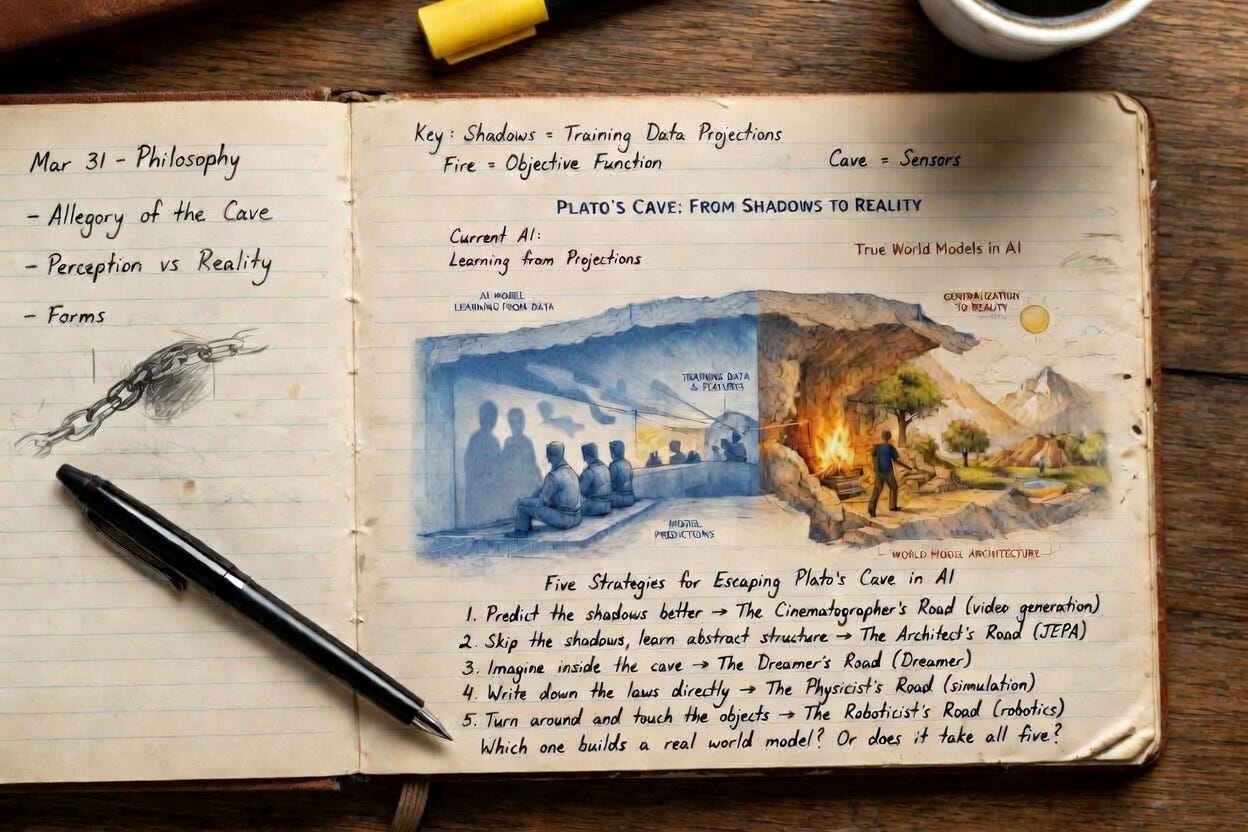 Mar 31 - Philosophy
- Allegory of the Cave
- Perception vs Reality
- Forms
Key: Shadows = Training Data Projections
Fire = Objective Function
Cave = Sensors
PLATO'S CAVE: FROM SHADOWS TO REALITY
Current AI:
Learning from Projections
True World Models in AI
AI MODEL
LEARNING FROM DATA
TO REALITY
TRAINING DATA
&
MODEL
PREDICTIONS
WORLD MODEL ARCHITECTURE
Five Strategies for Escaping Plato's Cave in AI
1. Predict the shadows better → The Cinematographer's Road (video generation)
2. Skip the shadows, learn abstract structure → The Architect's Road (JEPA)
3. Imagine inside the cave → The Dreamer's Road (Dreamer)
4. Write down the laws directly → The Physicist's Road (simulation)
5. Turn around and touch the objects → The Roboticist's Road (robotics)
Which one builds a real world model? Or does it take all five?